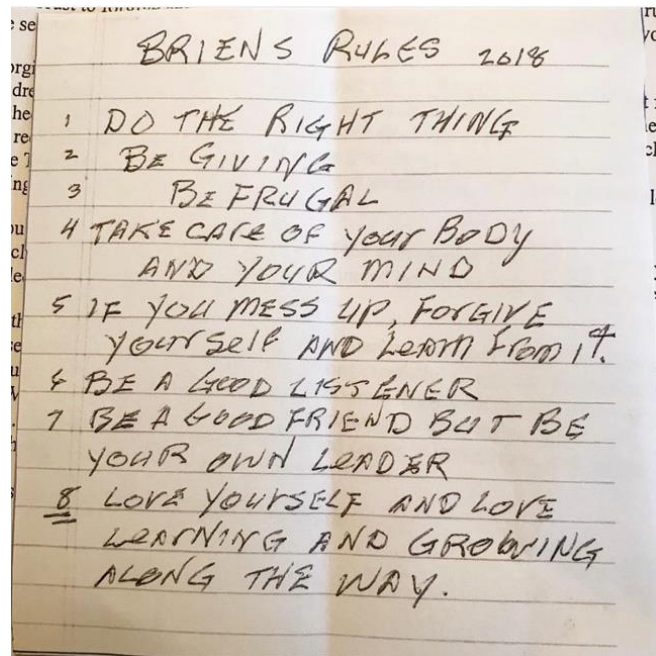 BRIENS RULES 2018
1 DO THE RIGHT THING
2 BE GIVING
3 BE FRUGAL
4 TAKE CARE OF YOUR BODY
AND YOUR MIND
5 IF YOU MESS UP, FORGIVE
YOURSELF AND LEARN FROM IT.
6 BE A GOOD LISTENER
7 BE A GOOD FRIEND BUT BE
YOUR OWN LEADER
8 LOVE YOURSELF AND LOVE
LEARNING AND GROWING
ALONG THE WAY.